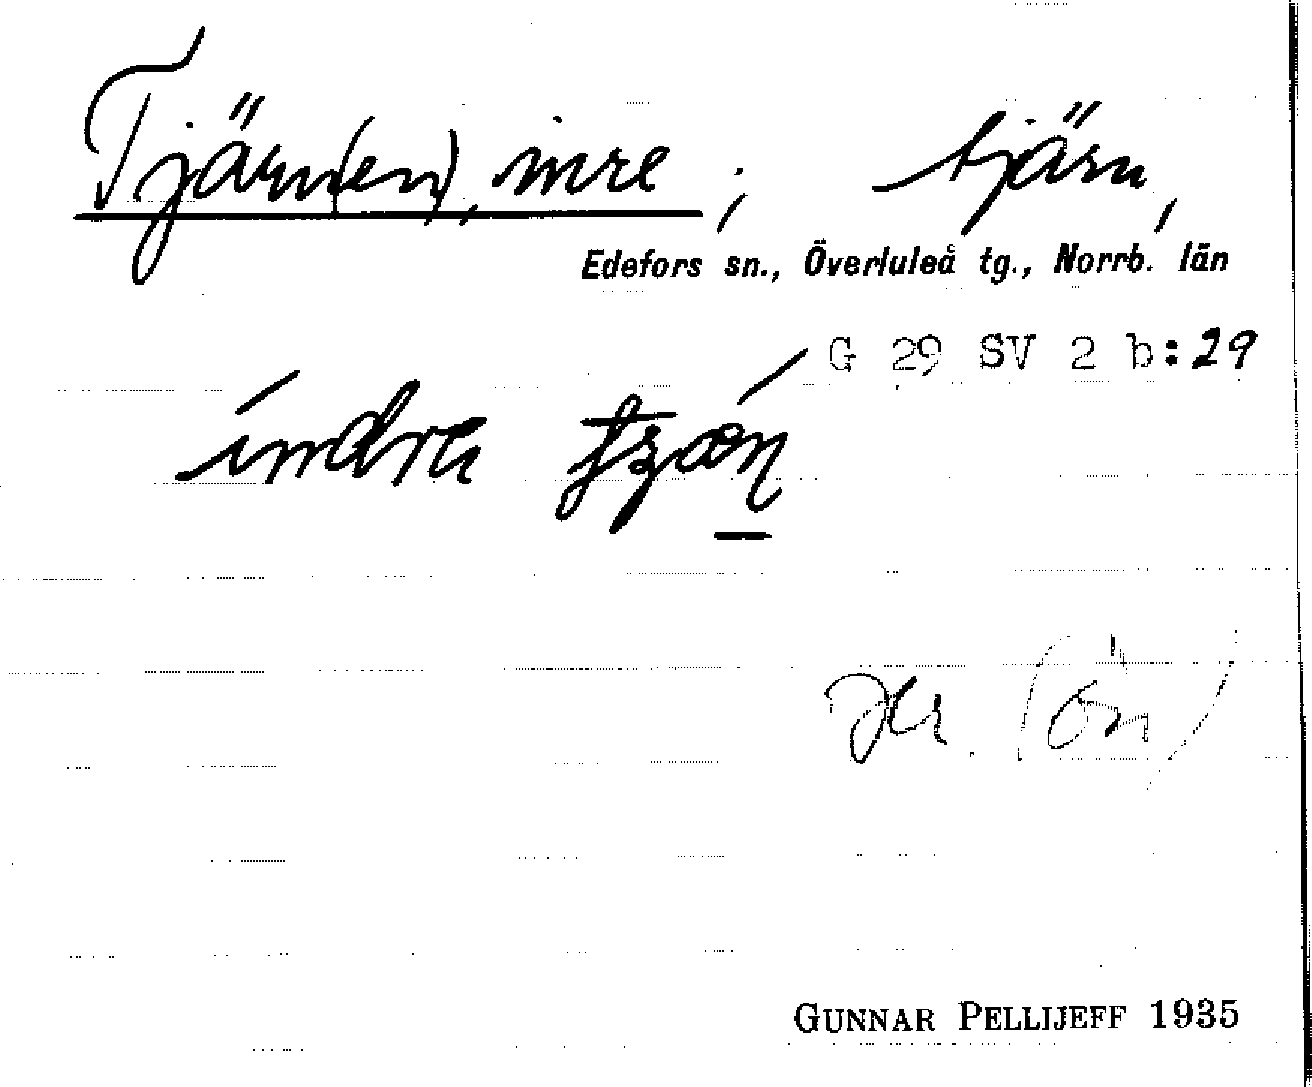 Tjärn(en), inre ; tjärn,
Edefors sn., Överluleå tg., Norrb. län
G 29 SV 2 b:29
(ön)
GUNNAR PELLIJEFF 1935